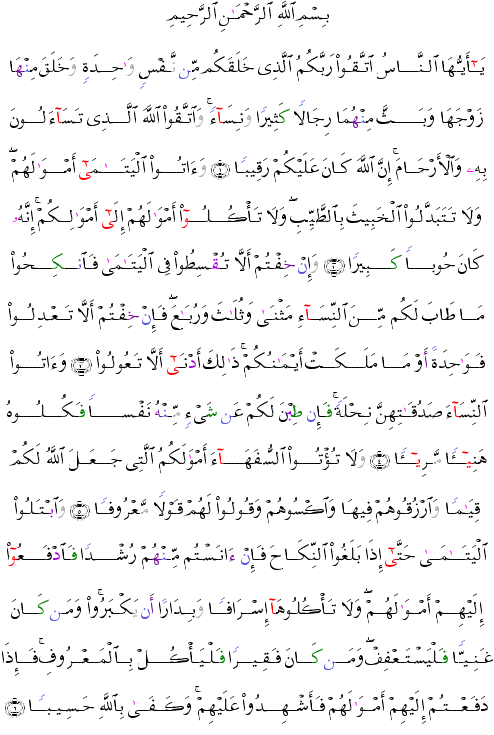 بِسْمِ ٱللَّهِ ٱلرَّحْمَـٰنِ ٱلرَّحِيمِ
يَـٰٓأَيُّهَا ٱلنَّـاسُ ٱتَّقُوا۟ رَبَّكُمُ ٱلَّذِى خَلَقَكُم مِّن نَّفْسٍ وَٰحِدَةٍ وَخَلَقَ مِنْهَا
زَوْجَهَا وَبَـثَّ مِنْهُمَا رِجَالًا كَثِيرًا وَنِسَآءً ۚ وَٱتَّقُوا۟ ٱللَّهَ ٱلَّـذِى تَسَآءَلُونَ
بِهِۦ وَٱلْأَرْحَامَ ۚ إِنَّ ٱللَّهَ كَانَ عَلَيْكُمْ رَقِيبًا ۝١ وَءَاتُوا۟ ٱلْيَتَـٰمَىٰٓ أَمْوَٰلَهُمْ ۖ
وَلَا تَتَبَدَّلُوا۟ ٱلْخَبِيثَ بِٱلطَّيِّبِ ۖ وَلَا تَأْكُلُوٓا۟ أَمْوَٰلَهُمْ إِلَىٰٓ أَمْوَٰلِكُمْ ۚ إِنَّهُۥ
كَانَ حُوبًا كَبِيرًا ۝٢ وَإِنْ خِفْتُمْ أَلَّا تُقْسِطُوا۟ فِى ٱلْيَتَـٰمَىٰ فَٱنكِحُوا۟
مَـا طَابَ لَكُم مِّـنَ ٱلنِّسَـآءِ مَثْنَىٰ وَثُلَـٰثَ وَرُبَـٰعَ ۖ فَإِنْ خِفْتُمْ أَلَّا تَعْدِلُوا۟
فَوَٰحِدَةً أَوْ مَـا مَلَـكَتْ أَيْمَـٰنُكُمْ ۚ ذَٰلِكَ أَدْنَىٰٓ أَلَّا تَعُولُوا۟ ۝٣ وَءَاتُوا۟
ٱلنِّسَآءَ صَدُقَـٰتِهِنَّ نِحْلَةً ۚ فَإِن طِبْنَ لَكُمْ عَن شَىْءٍ مِّنْهُ نَفْسًا فَكُلُوهُ
هَنِيٓـًٔا مَّرِيٓـًٔا ۝٤ وَلَا تُؤْتُوا۟ ٱلسُّفَهَـآءَ أَمْوَٰلَكُمُ ٱلَّتِى جَعَـلَ ٱللَّهُ لَكُمْ
قِيَـٰمًا وَٱرْزُقُوهُمْ فِيهَا وَٱكْسُوهُمْ وَقُولُوا۟ لَهُمْ قَوْلًا مَّعْرُوفًا ۝٥ وَٱبْتَلُوا۟
ٱلْيَتَـٰمَىٰ حَتَّىٰٓ إِذَا بَلَغُوا۟ ٱلنِّكَاحَ فَإِنْ ءَانَسْتُم مِّنْهُمْ رُشْـدًا فَٱدْفَعُوٓا۟
إِلَيْهِمْ أَمْوَٰلَهُمْ ۖ وَلَا تَأْكُلُوهَآ إِسْرَافًا وَبِدَارًا أَن يَكْبَرُوا۟ ۚ وَمَـن كَـانَ
غَنِيًّا فَلْيَسْتَعْفِفْ ۖ وَمَـن كَـانَ فَقِيـرًا فَلْيَأْكُـلْ بِٱلْمَعْرُوفِ ۚ فَإِذَا
دَفَعْتُمْ إِلَيْهِمْ أَمْوَٰلَهُمْ فَأَشْهِدُوا۟ عَلَيْهِمْ ۚ وَكَفَىٰ بِٱللَّهِ حَسِيبًا ۝٦